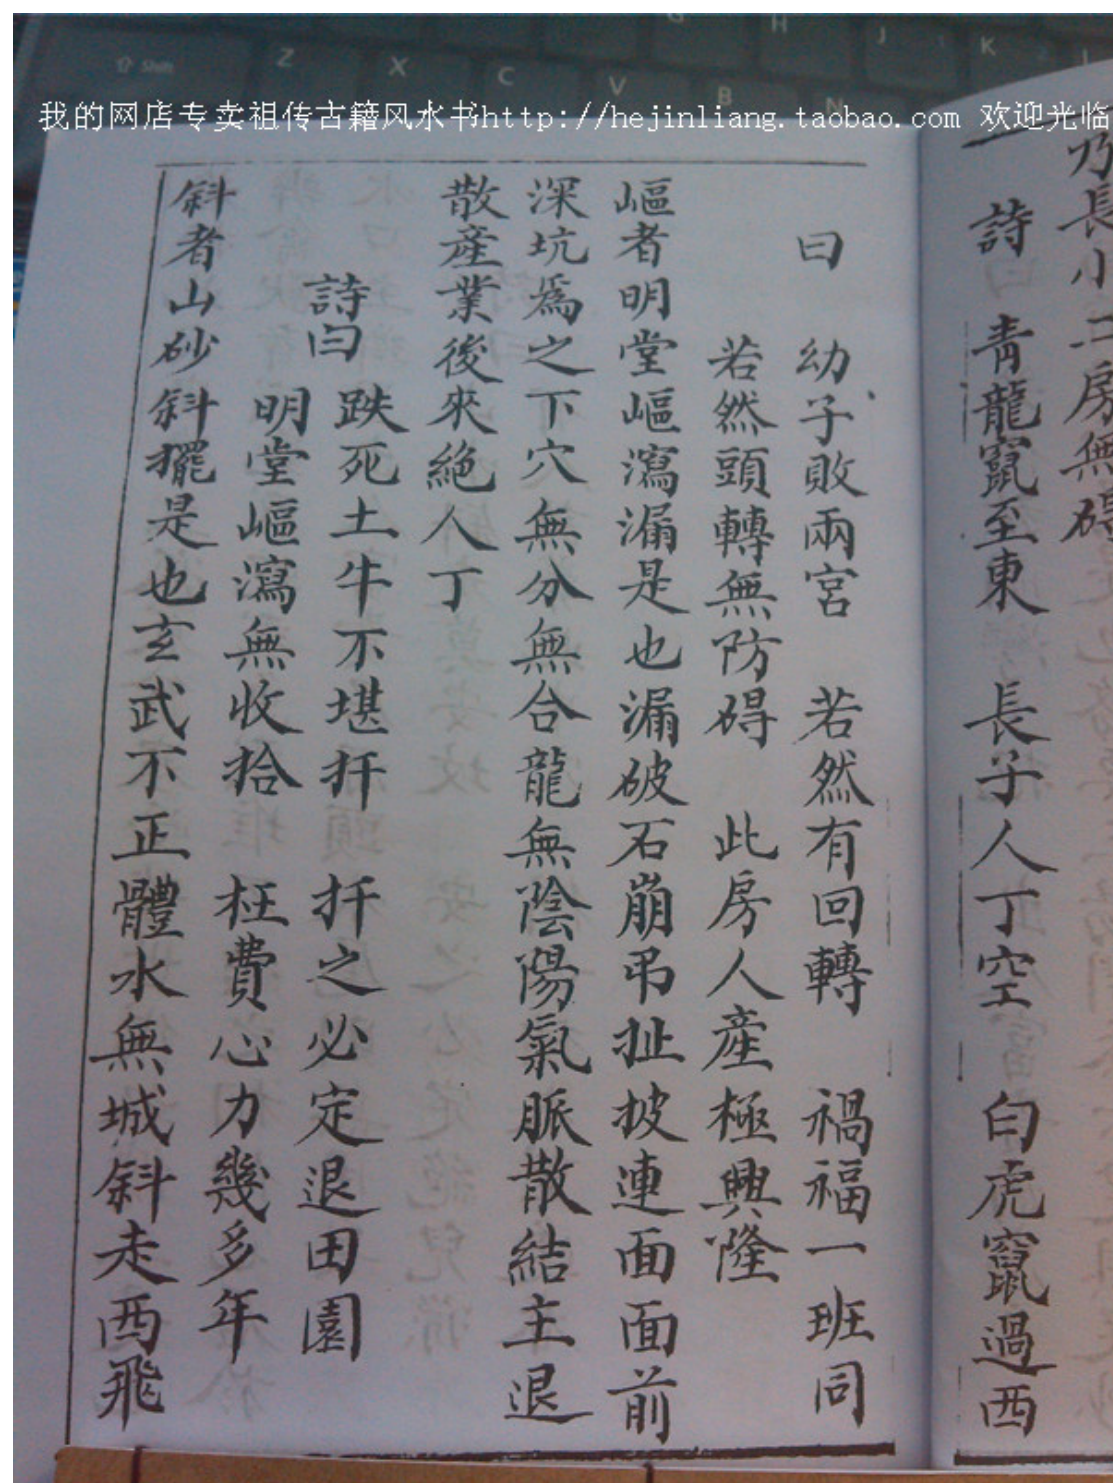 我的网店专卖祖传古籍风水书http://hejinliang.taobao.com 欢迎光临
乃長小二房無碍
詩 青龍竄至東 長子人丁空 白虎竄過西
曰 幼子敗兩宮 若然有回轉 禍福一班同
若然頭轉無防碍 此房人産極興隆
嶇者明堂嶇瀉漏是也漏破石崩弔扯披連面面前
深坑爲之下穴無分無合龍無陰陽氣脈散結主退
散産業後來絕人丁
詩曰 跌死土牛不堪扦 扦之必定退田園
明堂嶇瀉無收拾 枉費心力幾多年
斜者山砂斜擺是也玄武不正體水無城斜走西飛
Shift
Z
X
C
V
B
N
G
H
J
K
L